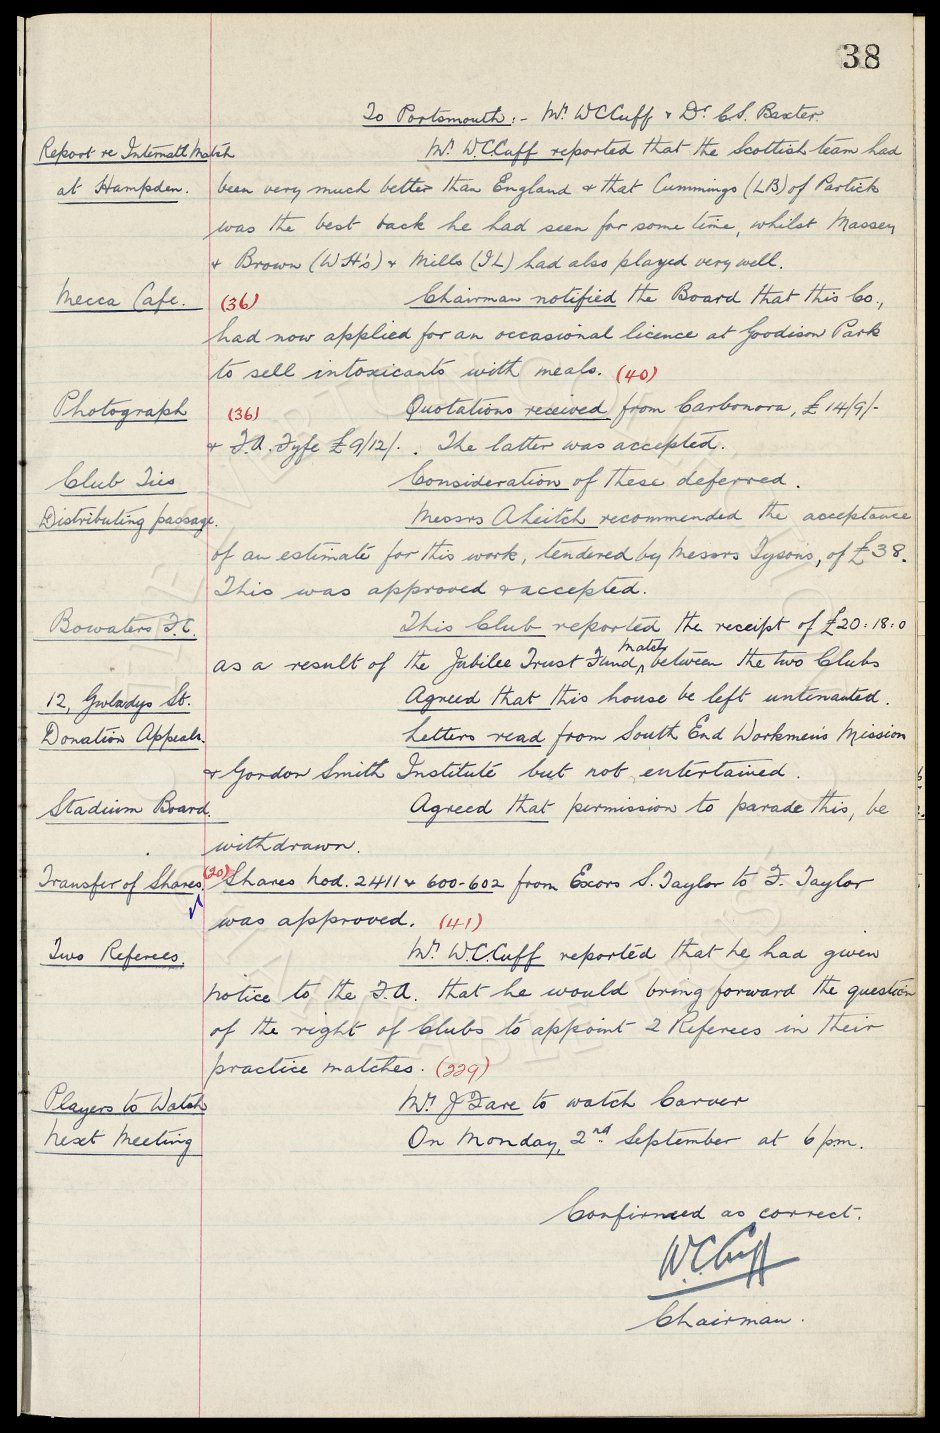 38
To Portsmouth:- Mr. W.C.Cuff & Dr. C.S. Baxter.
Report re Internatl Match Mr. W.C.Cuff reported that the Scottish team had
at Hampden. been very much better than England & that Cummings (LB) of Partick
was the best back he had seen for some time, whilst Massey
& Brown (WH's) & Mills (IL) had also played very well.
Mecca Cafe. (36) Chairman notified the Board that this Co.,
had now applied for an occasional licence at Goodison Park
to sell intoxicants with meals. (40)
Photograph (36) Quotations received from Carbonora, £14/9/-
& F.A. Fyfe £9/12/-. The latter was accepted.
Club Ties Consideration of these deferred.
Distributing passage. Messrs A Leitch recommended the acceptance
of an estimate for this work, tendered by Messrs Tysons, of £38.
This was approved & accepted.
Bowaters F.C. This Club reported the receipt of £20:18:0
as a result of the Jubilee Trust Fund match between the two Clubs
12, Gwladys St. Agreed that this house be left untenanted.
Donation Appeals. Letters read from South End Workmens Mission
& Gordon Smith Institute but not entertained.
Stadium Board. Agreed that permission to parade this, be
withdrawn.
Transfer of Shares. (20) Shares Nod. 2411 & 600-602 from Excors S. Taylor to F. Taylor
was approved. (41)
Two Referees. Mr. W.C.Cuff reported that he had given
notice to the F.A. that he would bring forward the question
of the right of Clubs to appoint 2 Referees in their
practice matches. (229)
Players to Watch Mr. J Fare to watch Carver
Next Meeting On Monday, 2nd. September at 6 p.m.
Confirmed as correct.
W.C. Cuff
Chairman.